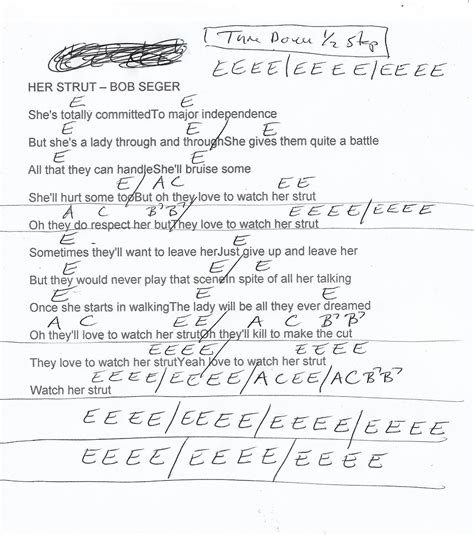 Tune Down 1/2 Step
EEEE/EEEE/EEEE
HER STRUT – BOB SEGER
E E
She's totally committedTo major independence
E E
But she's a lady through and throughShe gives them quite a battle
E
All that they can handleShe'll bruise some
E/ A C E E
She'll hurt some tooBut oh they love to watch her strut
A C B7 B7/ EEEE/EEEE
Oh they do respect her butThey love to watch her strut
E E
Sometimes they'll want to leave herJust give up and leave her
E E
But they would never play that sceneIn spite of all her talking
E E
Once she starts in walkingThe lady will be all they ever dreamed
A C E E/ A C B7 B7
Oh they'll love to watch her strutOh they'll kill to make the cut
EEEE/ EEEE
They love to watch her strutYeah love to watch her strut
EEEE/EEEE/ACEE/ACB7B7
Watch her strut
EEEE/EEEE/EEEE/EEEE
EEEE/EEEE/EEEE